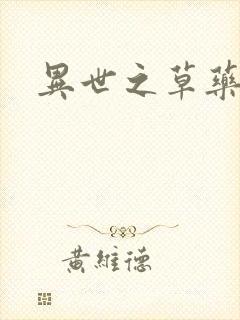 異世之草藥
黃維德